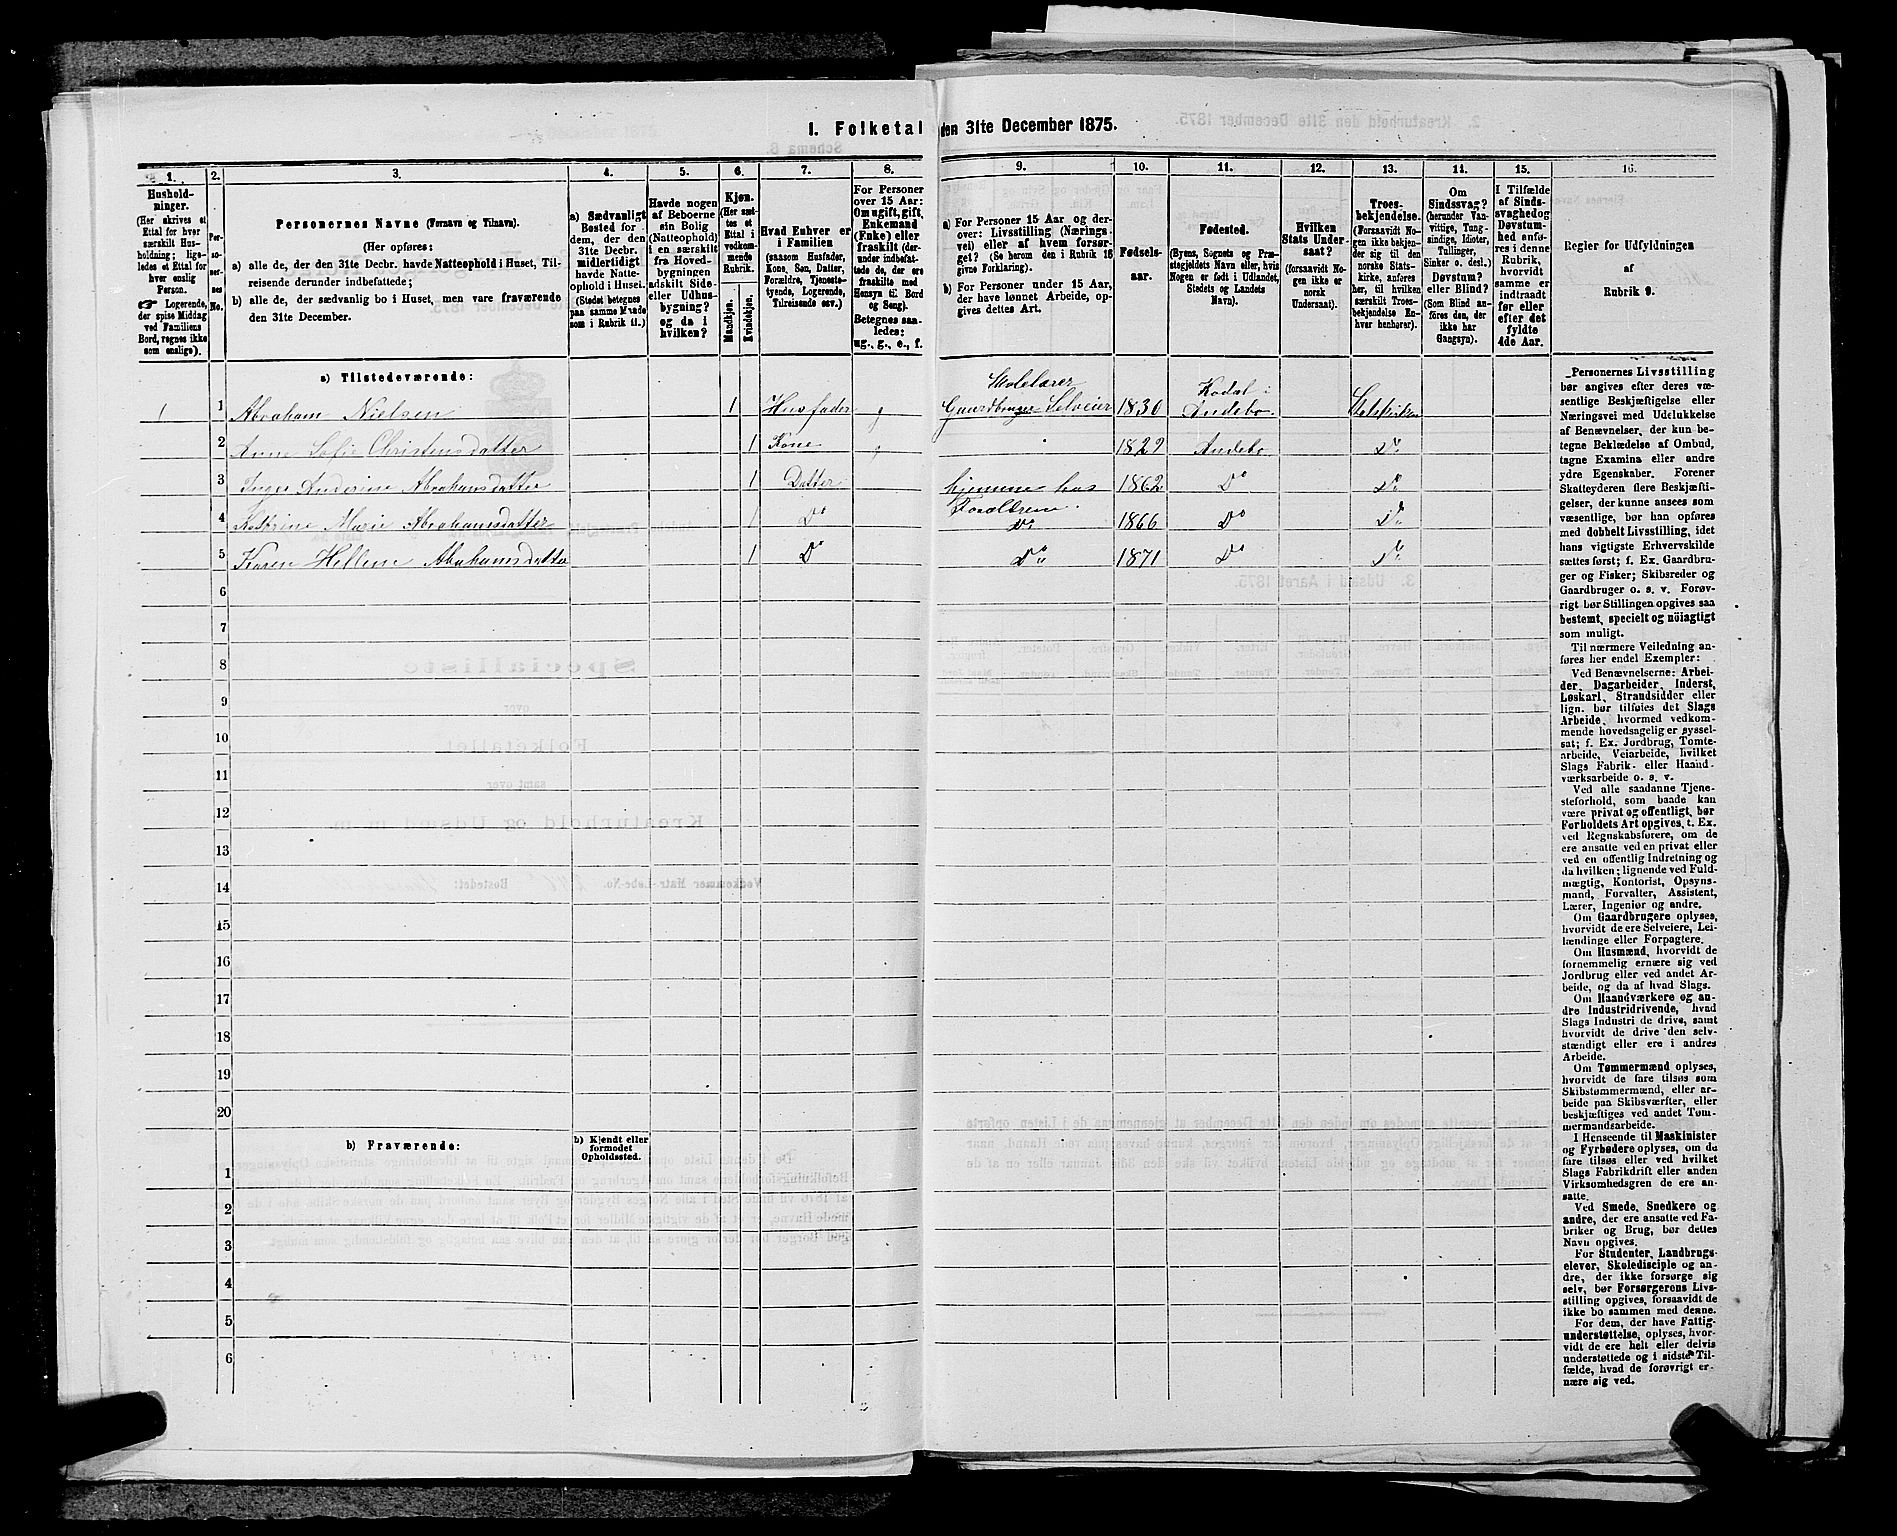 I. Folketal den 31te December 1875.
1.
Hushold-
ninger.
(Her skrives et
Ettal for hver
særskilt Hus-
holdning; lige-
ledes et Ettal for
hver enslig
Person.
☞ Logerende,
der spise Middag
ved Familiens
Bord, regnes ikke
som enslige).
2.
Per-
so-
ner-
nes
No.
3.
Personernes Navne (Fornavn og Tilnavn).
(Her opføres:
a) alle de, der den 31te Decbr. havde Natteophold i Huset, Til-
reisende derunder indbefattede;
b) alle de, der sædvanlig bo i Huset, men vare fraværende
den 31te December.
4.
a) Sædvanligt
Bosted for
dem, der den
31te Decbr.
midlertidigt
havde Natte-
ophold i Huset.
(Stedet betegnes
paa samme Maade
som i Rubrik 11.)
5.
Havde nogen
af Beboerne
sin Bolig
(Natteophold)
i en særskilt
fra Hoved-
bygningen
adskilt Side-
eller Udhus-
bygning?
og da i
hvilken?
6.
Kjøn.
(Her sæt-
tes et
Ettal i
vedkom-
mende
Rubrik.
Mandkjøn.
Kvindekjøn.
7.
Hvad Enhver er
i Familien
(saasom Husfader,
Kone, Søn, Datter,
Forældre, Tjeneste-
tyende, Logerende,
Tilreisende osv.)
8.
For Personer
over 15 Aar:
Om ugift, gift,
Enkemand
(Enke) eller
fraskilt (der-
under indbefat-
tede de, der ere
fraskilte med
Hensyn til Bord
og Seng).
Betegnes saa-
ledes:
ug., g., e., f.
9.
a) For Personer 15 Aar og der-
over: Livsstilling (Nærings-
vei) eller af hvem forsør-
get? (Se herom den i Rubrik 16
givne Forklaring).
b) For Personer under 15 Aar,
der have lønnet Arbeide, op-
gives dettes Art.
10.
Fødsels-
aar.
11.
Fødested.
(Byens, Sognets og Præ-
stegjeldets Navn eller, hvis
Nogen er født i Udlandet,
Stedets og Landets
Navn).
12.
Hvilken
Stats Under-
saat?
(forsaavidt No-
gen ikke er
norsk
Undersaat).
13.
Troes-
bekjendelse.
(Forsaavidt No-
gen ikke bekjen-
der sig til den
norske Stats-
kirke, anføres
her, til hvilken
særskilt Troes-
bekjendelse En-
hver henhører).
14.
Om
Sindssvag?
(herunder Van-
vittige, Tung-
sindige, Idioter,
Tullinger,
Sinker o. desl.)
Døvstum?
eller Blind?
(Som Blind an-
føres den, der
ikke har
Gangsyn).
15.
I Tilfælde
af Sinds-
svaghed og
Døvstum-
hed anfø-
res i denne
Rubrik,
hvorvidt
samme er
indtraadt
før eller
efter det
fyldte
4de Aar.
16.
Regler for Udfyldningen
af
Rubrik 9.
a) Tilstedeværende:
Skolelærer
1 1 Abraham Nielsen 1 Husfader g Gaardbruger Selveier 1830 Kodal i Andebo Statskirken
2 Anne Sofie Christensdatter 1 Kone g 1829 Andebo Do
3 Inger Anderine Abrahamsdatter 1 Datter hjemme hos Forældrene 1862 Do Do
4 Kathrine Marie Abrahamsdatter 1 Do Do 1866 Do Do
5 Karen Hellene Abrahamsdatter 1 Do Do 1871 Do Do
6
7
8
9
10
11
12
13
14
15
16
17
18
19
20
b) Fraværende:
b) Kjendt eller
formodet
Opholdssted.
1
2
3
4
5
6
Personernes Livsstilling
bør angives efter deres væ-
sentlige Beskjæftigelse eller
Næringsvei med Udelukkelse
af Benævnelser, der kun be-
tegne Beklædelse af Ombud,
tagne Examina eller andre
ydre Egenskaber. Forener
Skatteyderen flere Beskjæfti-
gelser, der kunne ansees som
væsentlige, bør han opføres
med dobbelt Livsstilling, idet
hans vigtigste Erhvervskilde
sættes først; f. Ex. Gaardbru-
ger og Fisker; Skibsreder og
Gaardbruger o. s. v. Forøv-
rigt bør Stillingen opgives saa
bestemt, specielt og nöiagtigt
som muligt.
Til nærmere Veiledning an-
føres her endel Exempler:
Ved Benævnelserne: Arbei-
der, Dagarbeider, Inderst,
Løskarl, Strandsidder eller
lign. bør tilføies det Slags
Arbeide, hvormed vedkom-
mende hovedsagelig er syssel-
sat; f. Ex. Jordbrug, Tomte-
arbeide, Veiarbeide, hvilket
Slags Fabrik- eller Haand-
værksarbeide o. s. v.
Ved alle saadanne Tjene-
steforhold, som baade kan
være privat og offentligt, bør
Forholdets Art opgives, t. Ex.
ved Regnskabsførere, om de
ere ansatte ved en privat eller
ved en offentlig Indretning og
da hvilken; lignende ved Fuld-
mægtig, Kontorist, Opsyns-
mand, Forvalter, Assistent,
Lærer, Ingeniør og andre.
Om Gaardbrugere oplyses,
hvorvidt de ere Selveiere, Lei-
lændinge eller Forpagtere.
Om Husmænd, hvorvidt de
fornemmelig ernære sig ved
Jordbrug eller ved andet Ar-
beide, og da af hvad Slags.
Om Haandværkere og an-
dre Industridrivende, hvad
Slags Industri de drive, samt
hvorvidt de drive den selv-
stændigt eller ere i andres
Arbeide.
Om Tømmermænd oplyses,
hvorvidt de fare tilsøs som
Skibstømmermænd, eller ar-
beide paa Skibsværfter, eller
beskjæftiges ved andet Tøm-
mermandsarbeide.
I Henseende til Maskinister
og Fyrbødere oplyses, om de
fare tilsøs eller ved hvilket
Slags Fabrikdrift eller anden
Virksomhedsgren de ere an-
satte.
Ved Smede, Snedkere og
andre, der ere ansatte ved Fa-
briker og Brug, bør dettes
Navn opgives.
For Studenter, Landbrugs-
elever, Skoledisciple og an-
dre, der ikke forsørge sig
selv, bør Forsørgerens Livs-
stilling opgives, forsaavidt de
ikke bo sammen med denne.
For dem, der have Fattig-
understøttelse, oplyses, hvor-
vidt de ere helt eller delvis
understøttede og i sidste Til-
fælde, hvad de forøvrigt er-
nære sig ved.